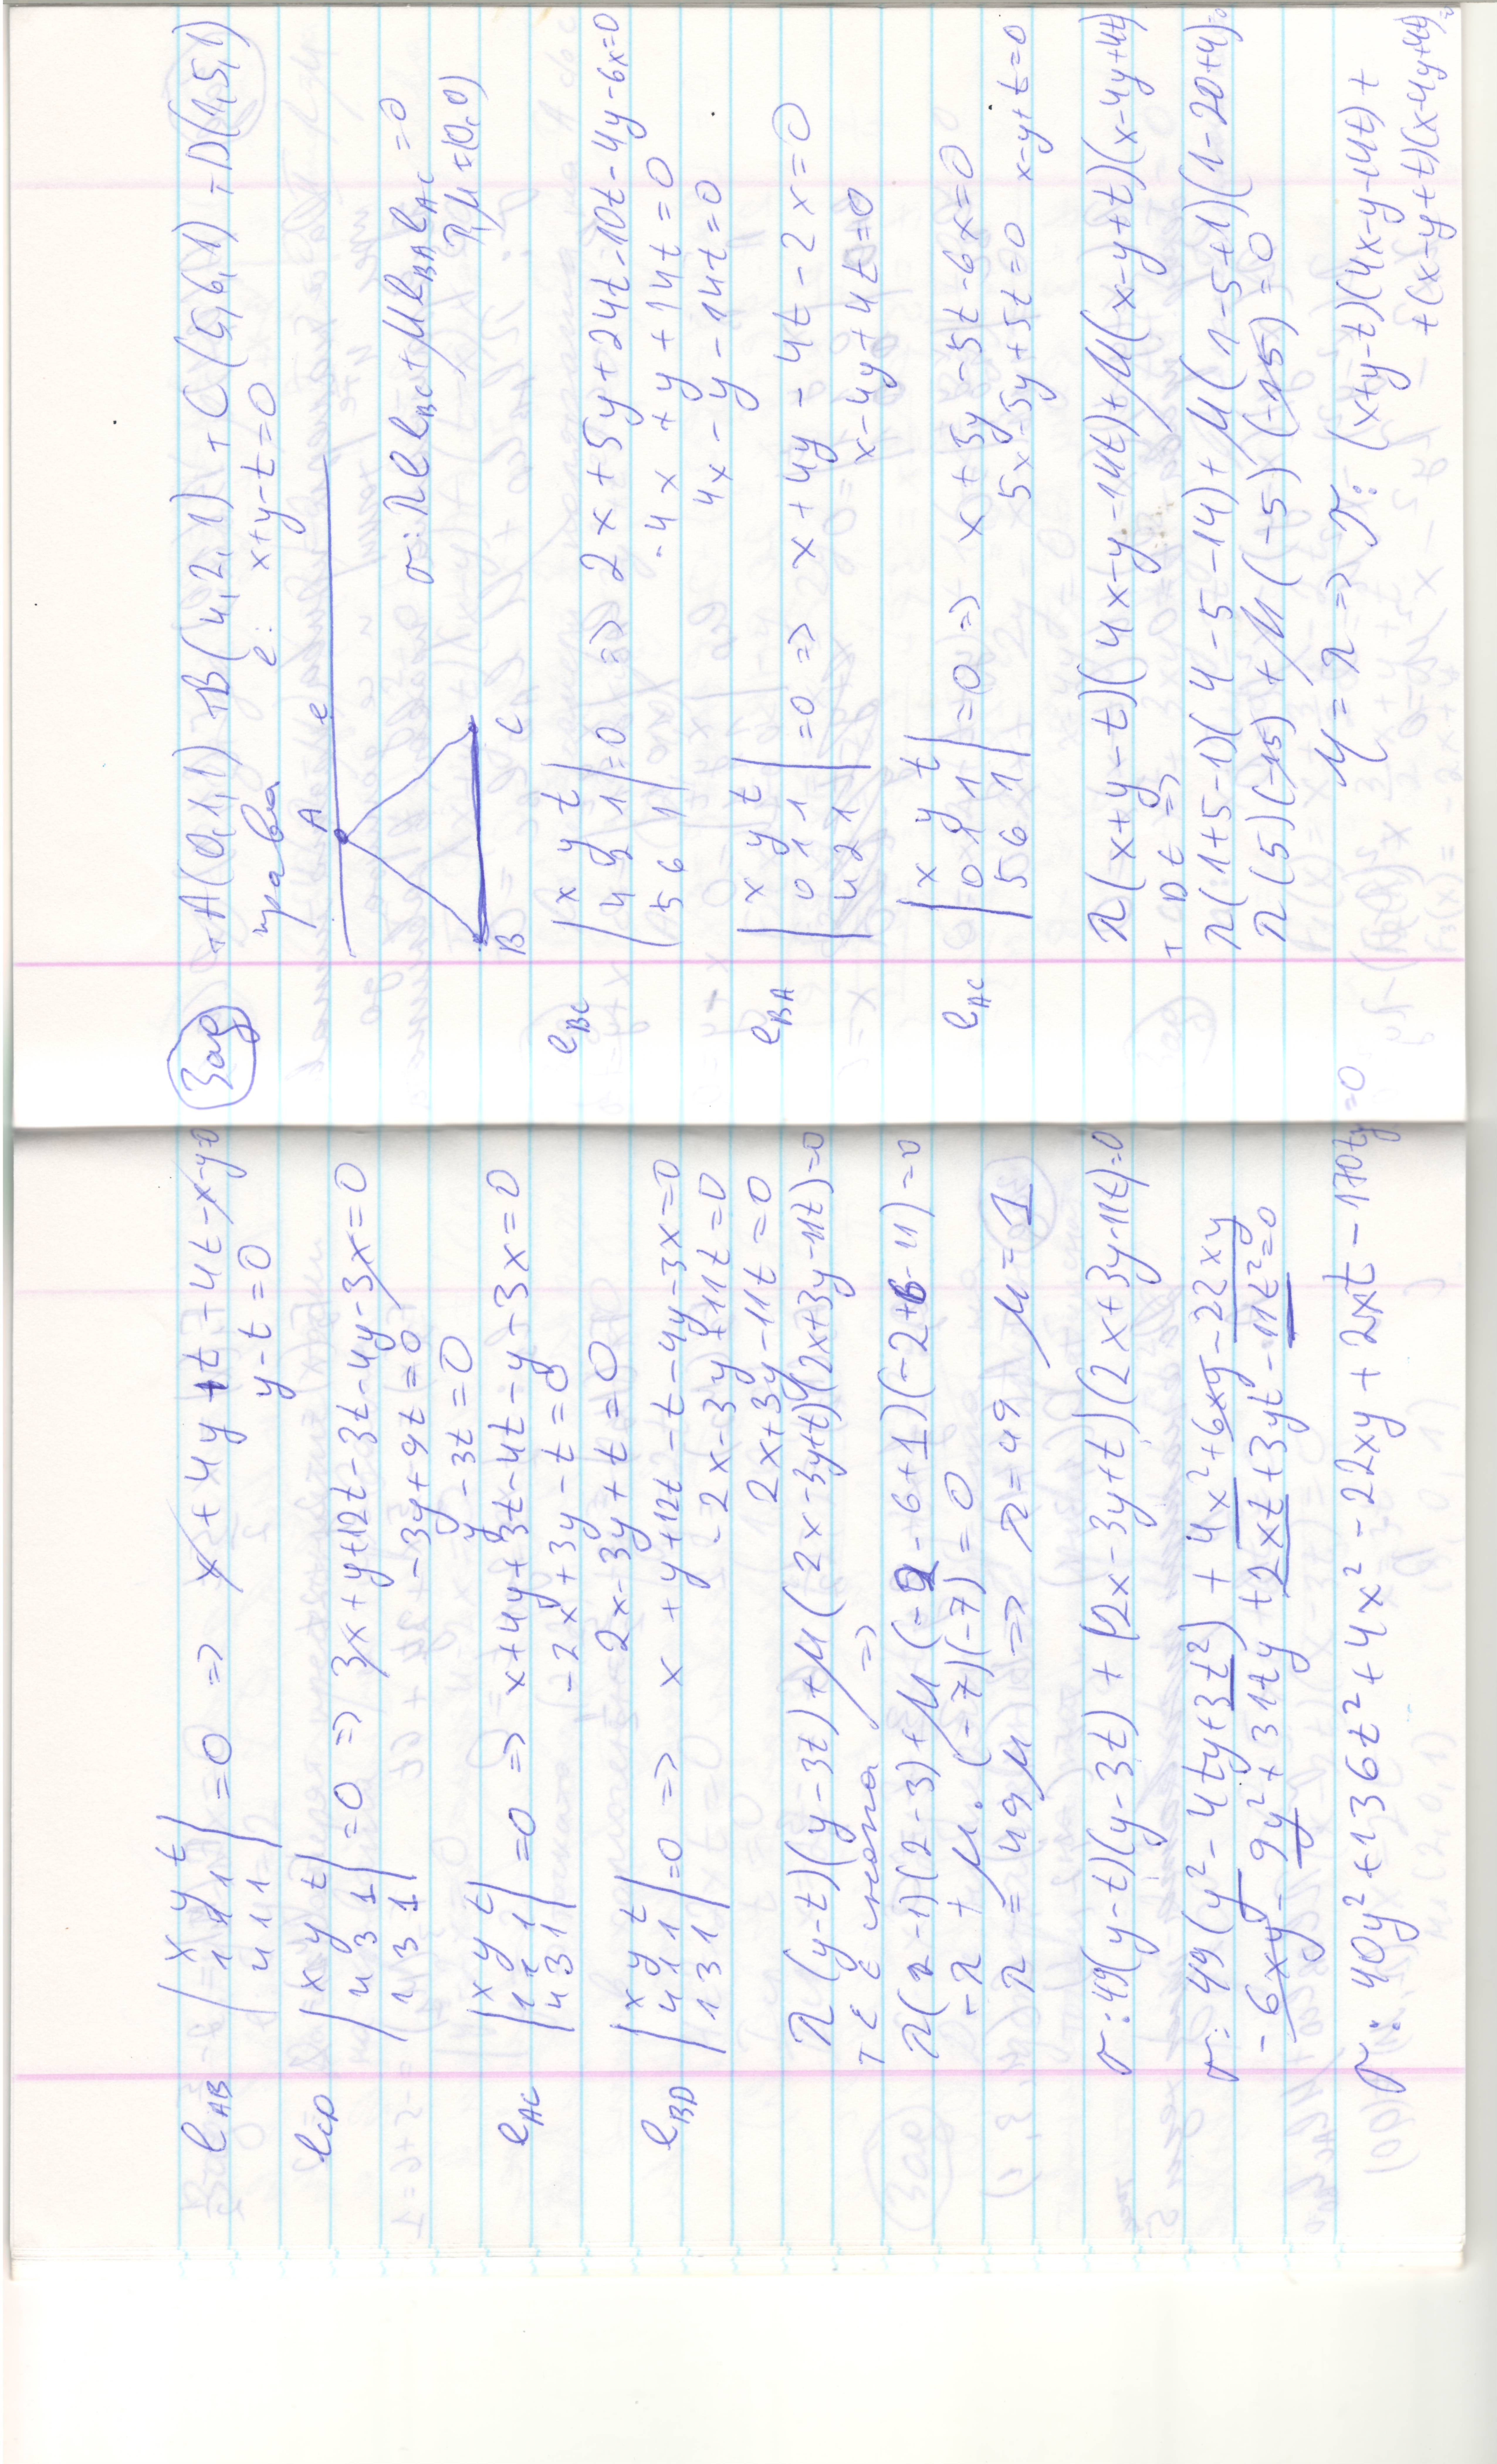 l_AB | x y t ; 1 1 1 ; 4 1 1 | =0 => x + 4y + t - 4t - x - y=0
y - t = 0
l_CD | x y t ; 4 3 1 ; 1 3 1 | =0 => 3x + y + 12t - 3t - 4y - 3x = 0
-3y + 9t = 0
y - 3t = 0
l_AC | x y t ; 1 1 1 ; 4 3 1 | =0 => x + 4y + 3t - 4t - y - 3x = 0
-2x + 3y - t = 0
2x - 3y + t = 0
l_BD | x y t ; 4 1 1 ; 1 3 1 | =0 => x + y + 12t - t - 4y - 3x = 0
-2x - 3y + 11t = 0
2x + 3y - 11t = 0
λ(y-t)(y-3t) + μ(2x-3y+t)(2x+3y-11t)=0
т E =>
λ(2-1)(2-3) + μ(-2-6+1)(-2+6-11)=0
-λ + μ.(-7)(-7) = 0
λ = 49μ => λ = 49 μ = 1
σ: 49(y-t)(y-3t) + (2x-3y+t)(2x+3y-11t)=0
σ: 49(y² - 4ty + 3t²) + 4x² + 6xy - 22xy
- 6xy - 9y² + 31ty + 2xt + 3yt - 11t²=0
σ: 40y² + 136t² + 4x² - 22xy + 2xt - 170ty=0
Зад + A(0,1,1) + B(4,2,1) + C(5,6,1) + D(1,5,1)
права e: x+y-t=0
A e
σ: λ l_BC + μ l_BA l_AC = 0
λ,μ ≠ (0,0)
B C
l_BC | x y t ; 4 2 1 ; 5 6 1 | =0 => 2x + 5y + 24t - 10t - 4y - 6x=0
-4x + y + 14t = 0
4x - y - 14t = 0
l_BA | x y t ; 0 1 1 ; 4 2 1 | =0 => x + 4y - 4t - 2x = 0
x - 4y + 4t = 0
l_AC | x y t ; 0 1 1 ; 5 6 1 | =0 => x + 5y - 5t - 6x = 0
5x - 5y + 5t = 0 x - y + t = 0
λ(x+y-t)(4x-y-14t) + μ(x-y+t)(x-4y+4t)
т D t =>
λ(1+5-1)(4-5-14) + μ(1-5+1)(1-20+4)=0
λ(5)(-15) + μ(-5)(-15) = 0
μ = λ => σ: (x+y-t)(4x-y-14t) +
+(x-y+t)(x-4y+4t)=